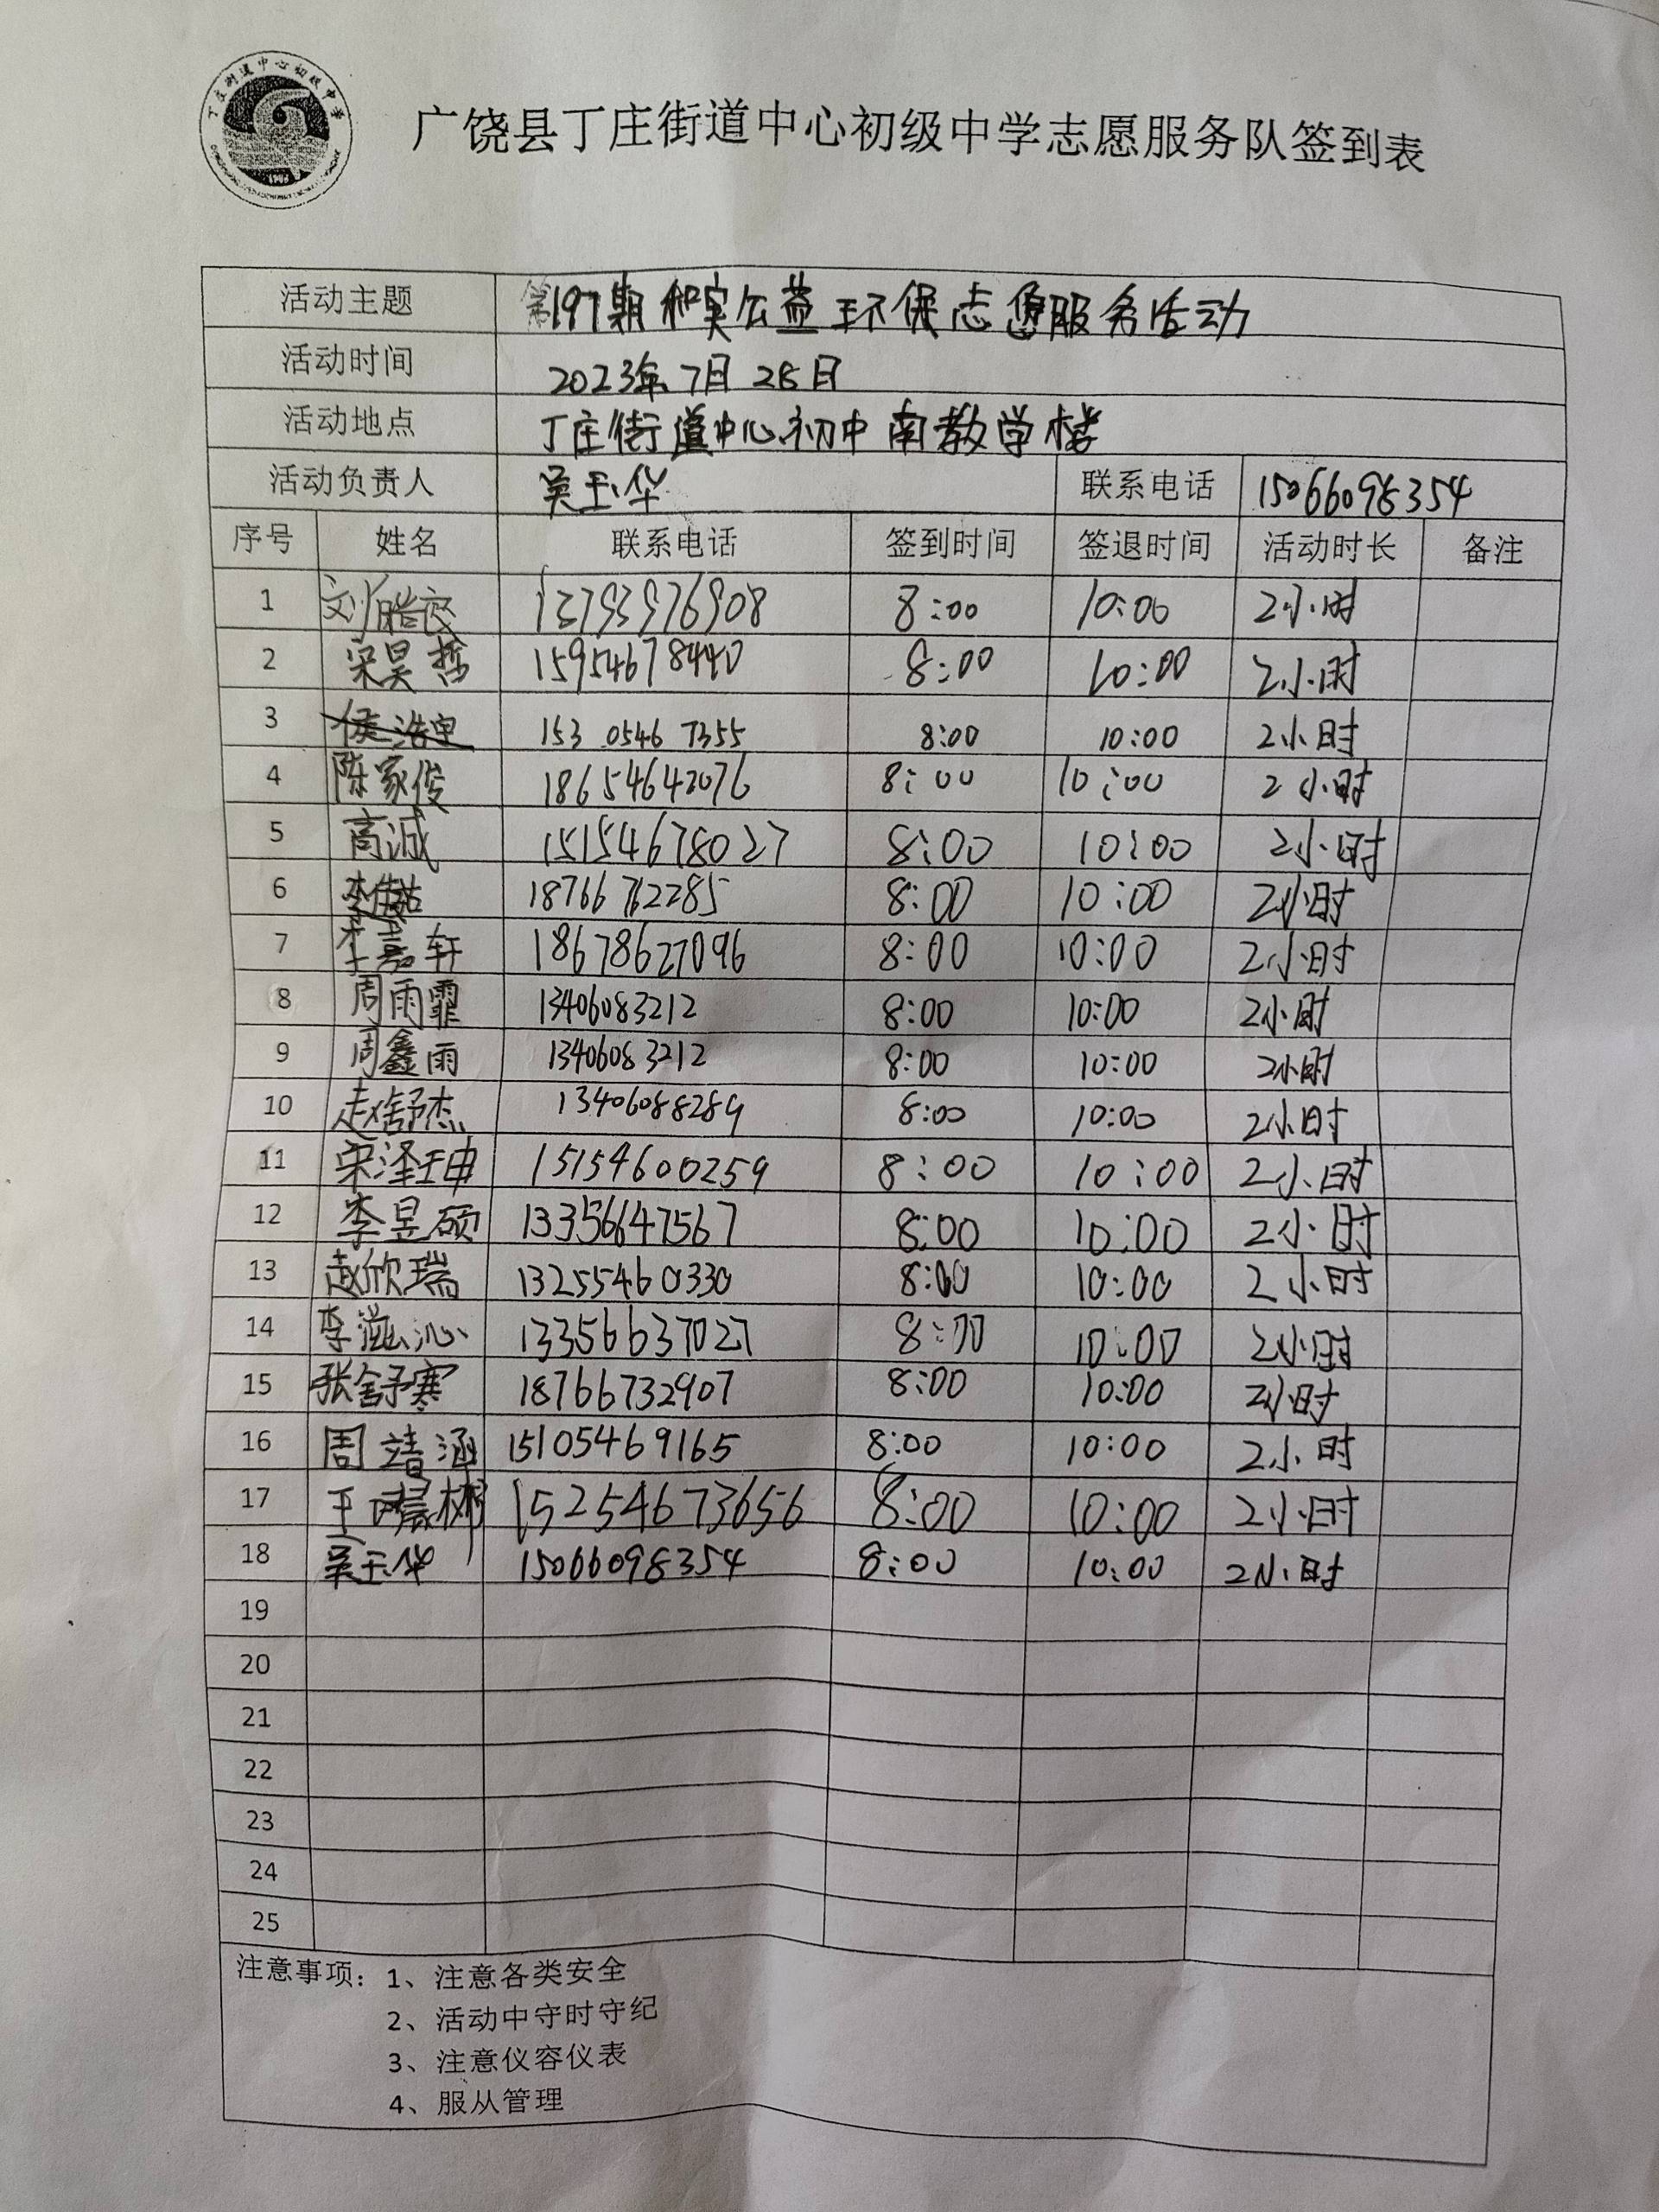 丁庄街道中心初级中学
广饶县丁庄街道中心初级中学志愿服务队签到表
活动主题 第197期和实公益环保志愿服务活动
活动时间 2023年7月28日
活动地点 丁庄街道中心初中南教学楼
活动负责人 吴玉华 联系电话 15066098354
序号 姓名 联系电话 签到时间 签退时间 活动时长 备注
1 刘皓宸 13793976908 8:00 10:00 2小时
2 宋昊哲 15954678440 8:00 10:00 2小时
3 侯浩宇 153 0546 7355 8:00 10:00 2小时
4 陈家俊 18654642076 8:00 10:00 2小时
5 高诚 15154678027 8:00 10:00 2小时
6 18766762285 8:00 10:00 2小时
7 李嘉轩 18678627096 8:00 10:00 2小时
8 周雨霏 13406083212 8:00 10:00 2小时
9 周鑫雨 13406083212 8:00 10:00 2小时
10 赵舒杰 13406088289 8:00 10:00 2小时
11 宋泽坤 15154600259 8:00 10:00 2小时
12 李昱硕 13356647567 8:00 10:00 2小时
13 赵欣瑞 13255460330 8:00 10:00 2小时
14 李滋沁 13356637027 8:00 10:00 2小时
15 张舒寒 18766732907 8:00 10:00 2小时
16 周靖涵 15105469165 8:00 10:00 2小时
17 王晨彬 15254673656 8:00 10:00 2小时
18 吴玉华 15066098354 8:00 10:00 2小时
19
20
21
22
23
24
25
注意事项：1、注意各类安全
2、活动中守时守纪
3、注意仪容仪表
4、服从管理